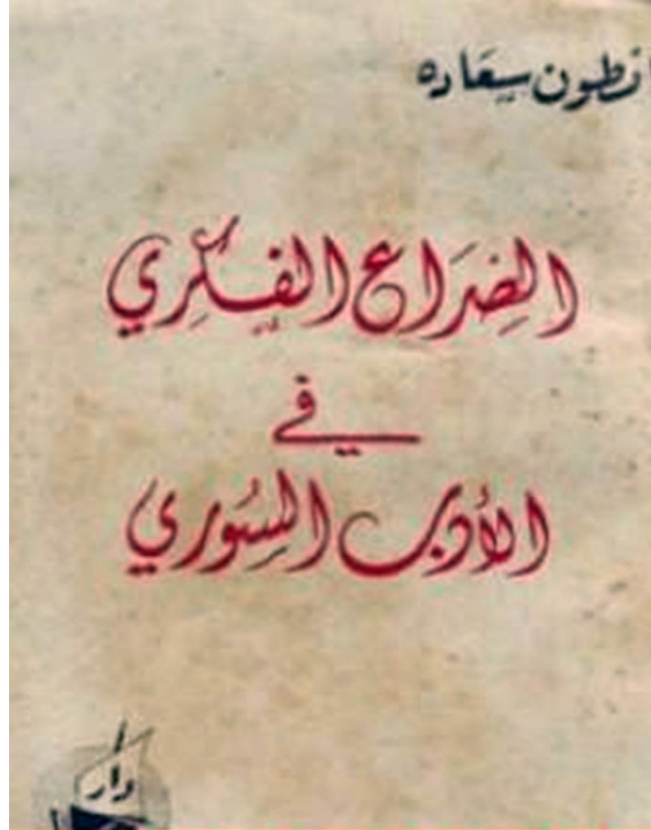 نطون سعاده
الصراع الفكري
في
الأدب السوري
دار